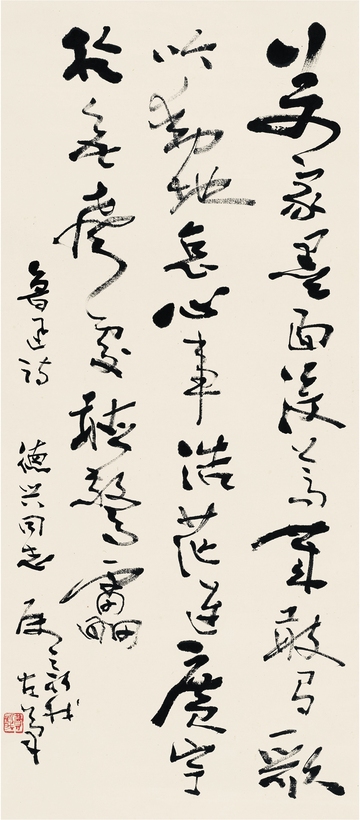 萬家墨面沒蒿萊敢有歌
吟動地哀心事浩茫連廣宇
於無聲處聽驚靁
魯迅詩 德兴同志 新我左筆